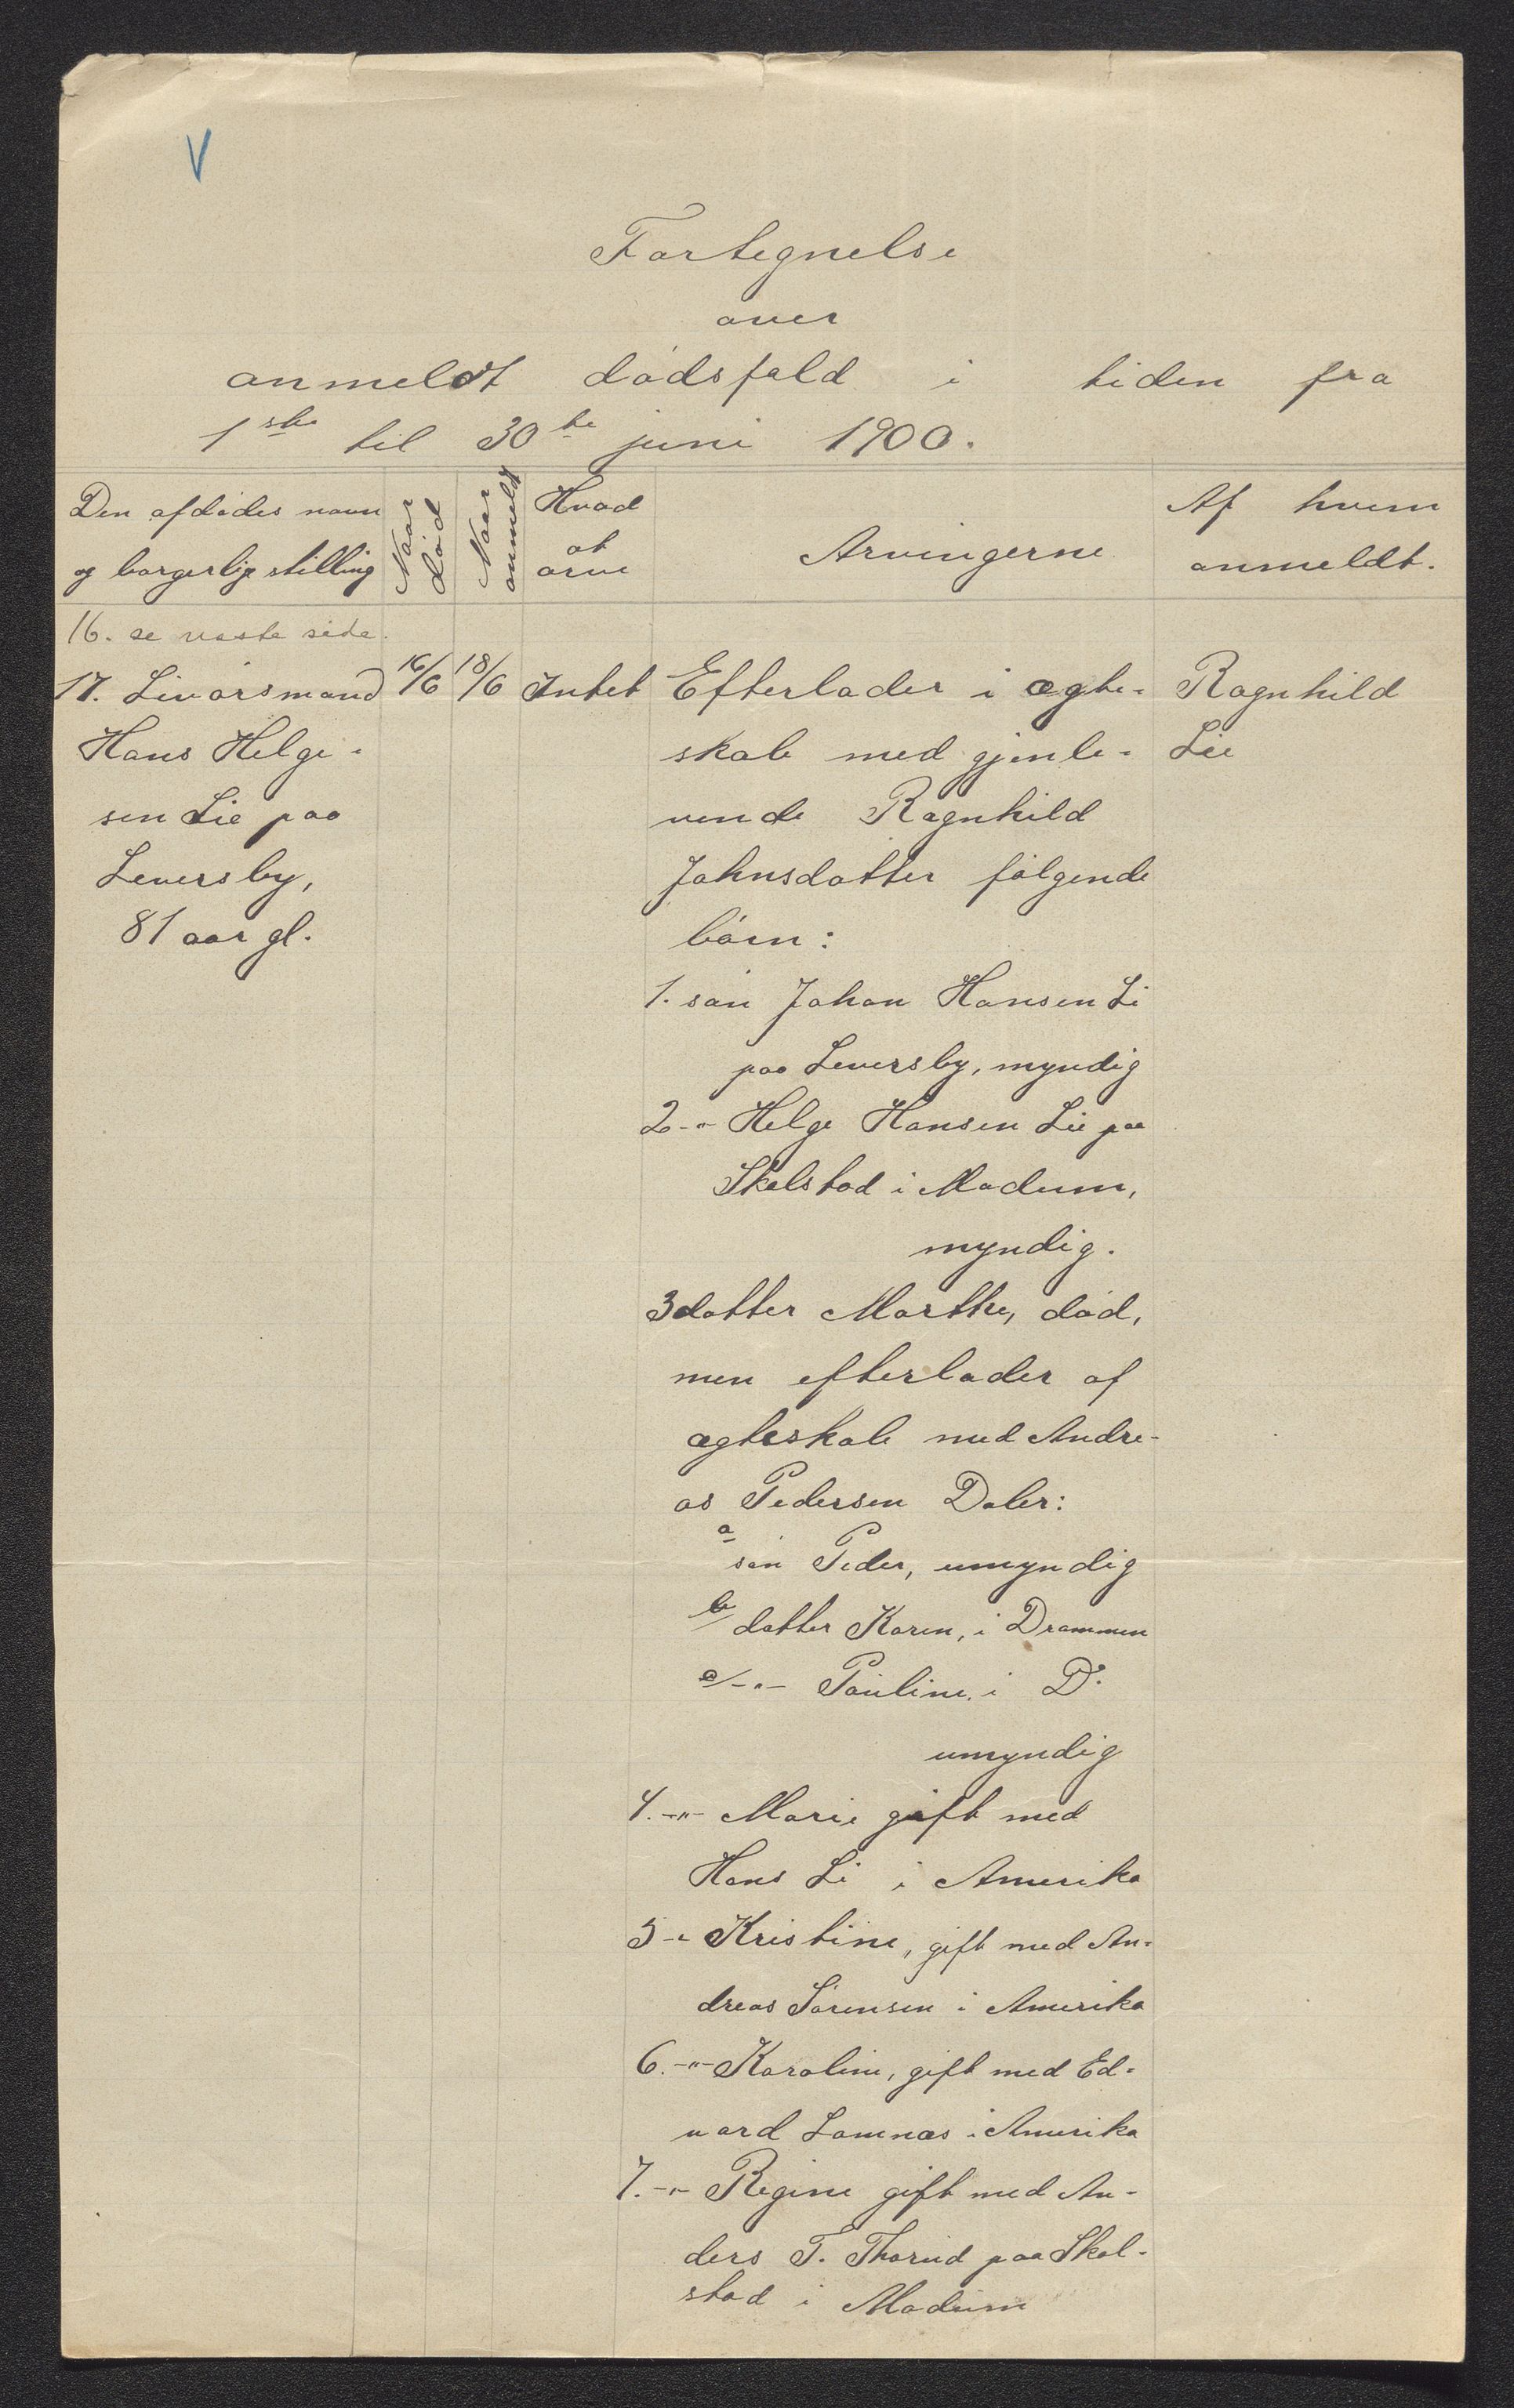 V
Fortegnelse
over
anmeldt dødsfald i tiden fra
1ste til 30te juni 1900.
Den afdødes navn
og borgerlige stilling
Naar
død
Naar
anmeldt
Hvad
at
arve
Arvingerne
Af hvem
anmeldt.
16. se næste side.
17. Livørsmand
Hans Helge-
sen Lie paa
Leversby,
81 aar gl.
16/6
18/6
Intet
Efterlader i ægte-
skab med gjenle-
vende Ragnhild
Johnsdatter følgende
børn:
1. søn Johan Hansen Li
paa Leversby, myndig
2 -"- Helge Hansen Lie paa
Skalstad i Modum,
myndig.
3 datter Marthe, død,
men efterlader af
ægteskab med Andre-
as Pedersen Daler:
a søn Peder, umyndig
b/ datter Karen, i Drammen
c/ -"- Pauline, i Do
umyndig
4. -"- Marie gift med
Hans Li i Amerika
5 -"- Kristine, gift med An-
dreas Sørensen i Amerika
6. -"- Karoline, gift med Ed-
vard Lomnæs i Amerika
7. -"- Regine gift med An-
ders T. Thorud paa Skal-
stad i Modum
Ragnhild
Lie